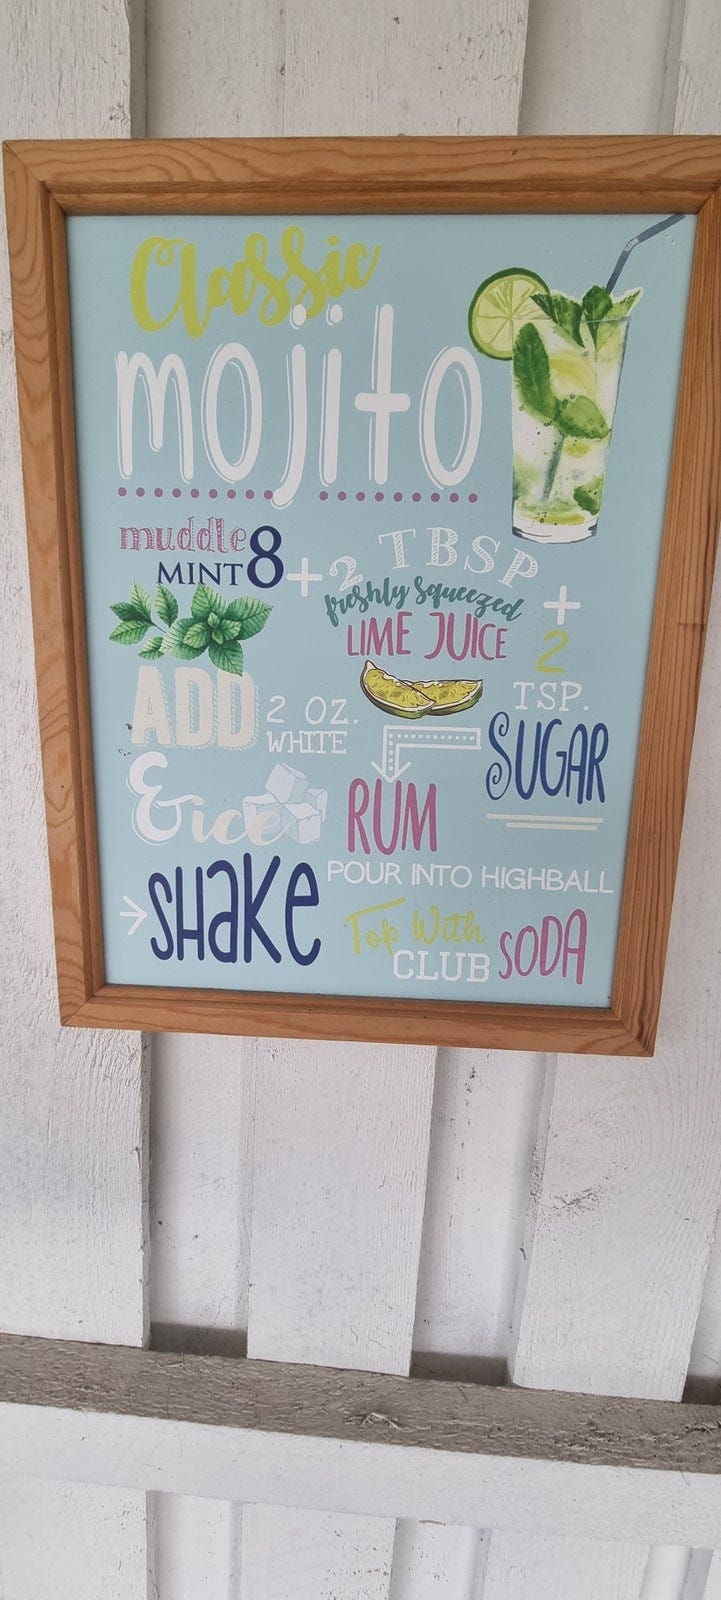 Classic
mojito
muddle
MINT 8 + 2 TBSP
freshly squeezed
LIME JUICE
+
2
TSP.
SUGAR
ADD 2 OZ.
WHITE
RUM
& ice
SHAKE
POUR INTO HIGHBALL
Top With
CLUB SODA